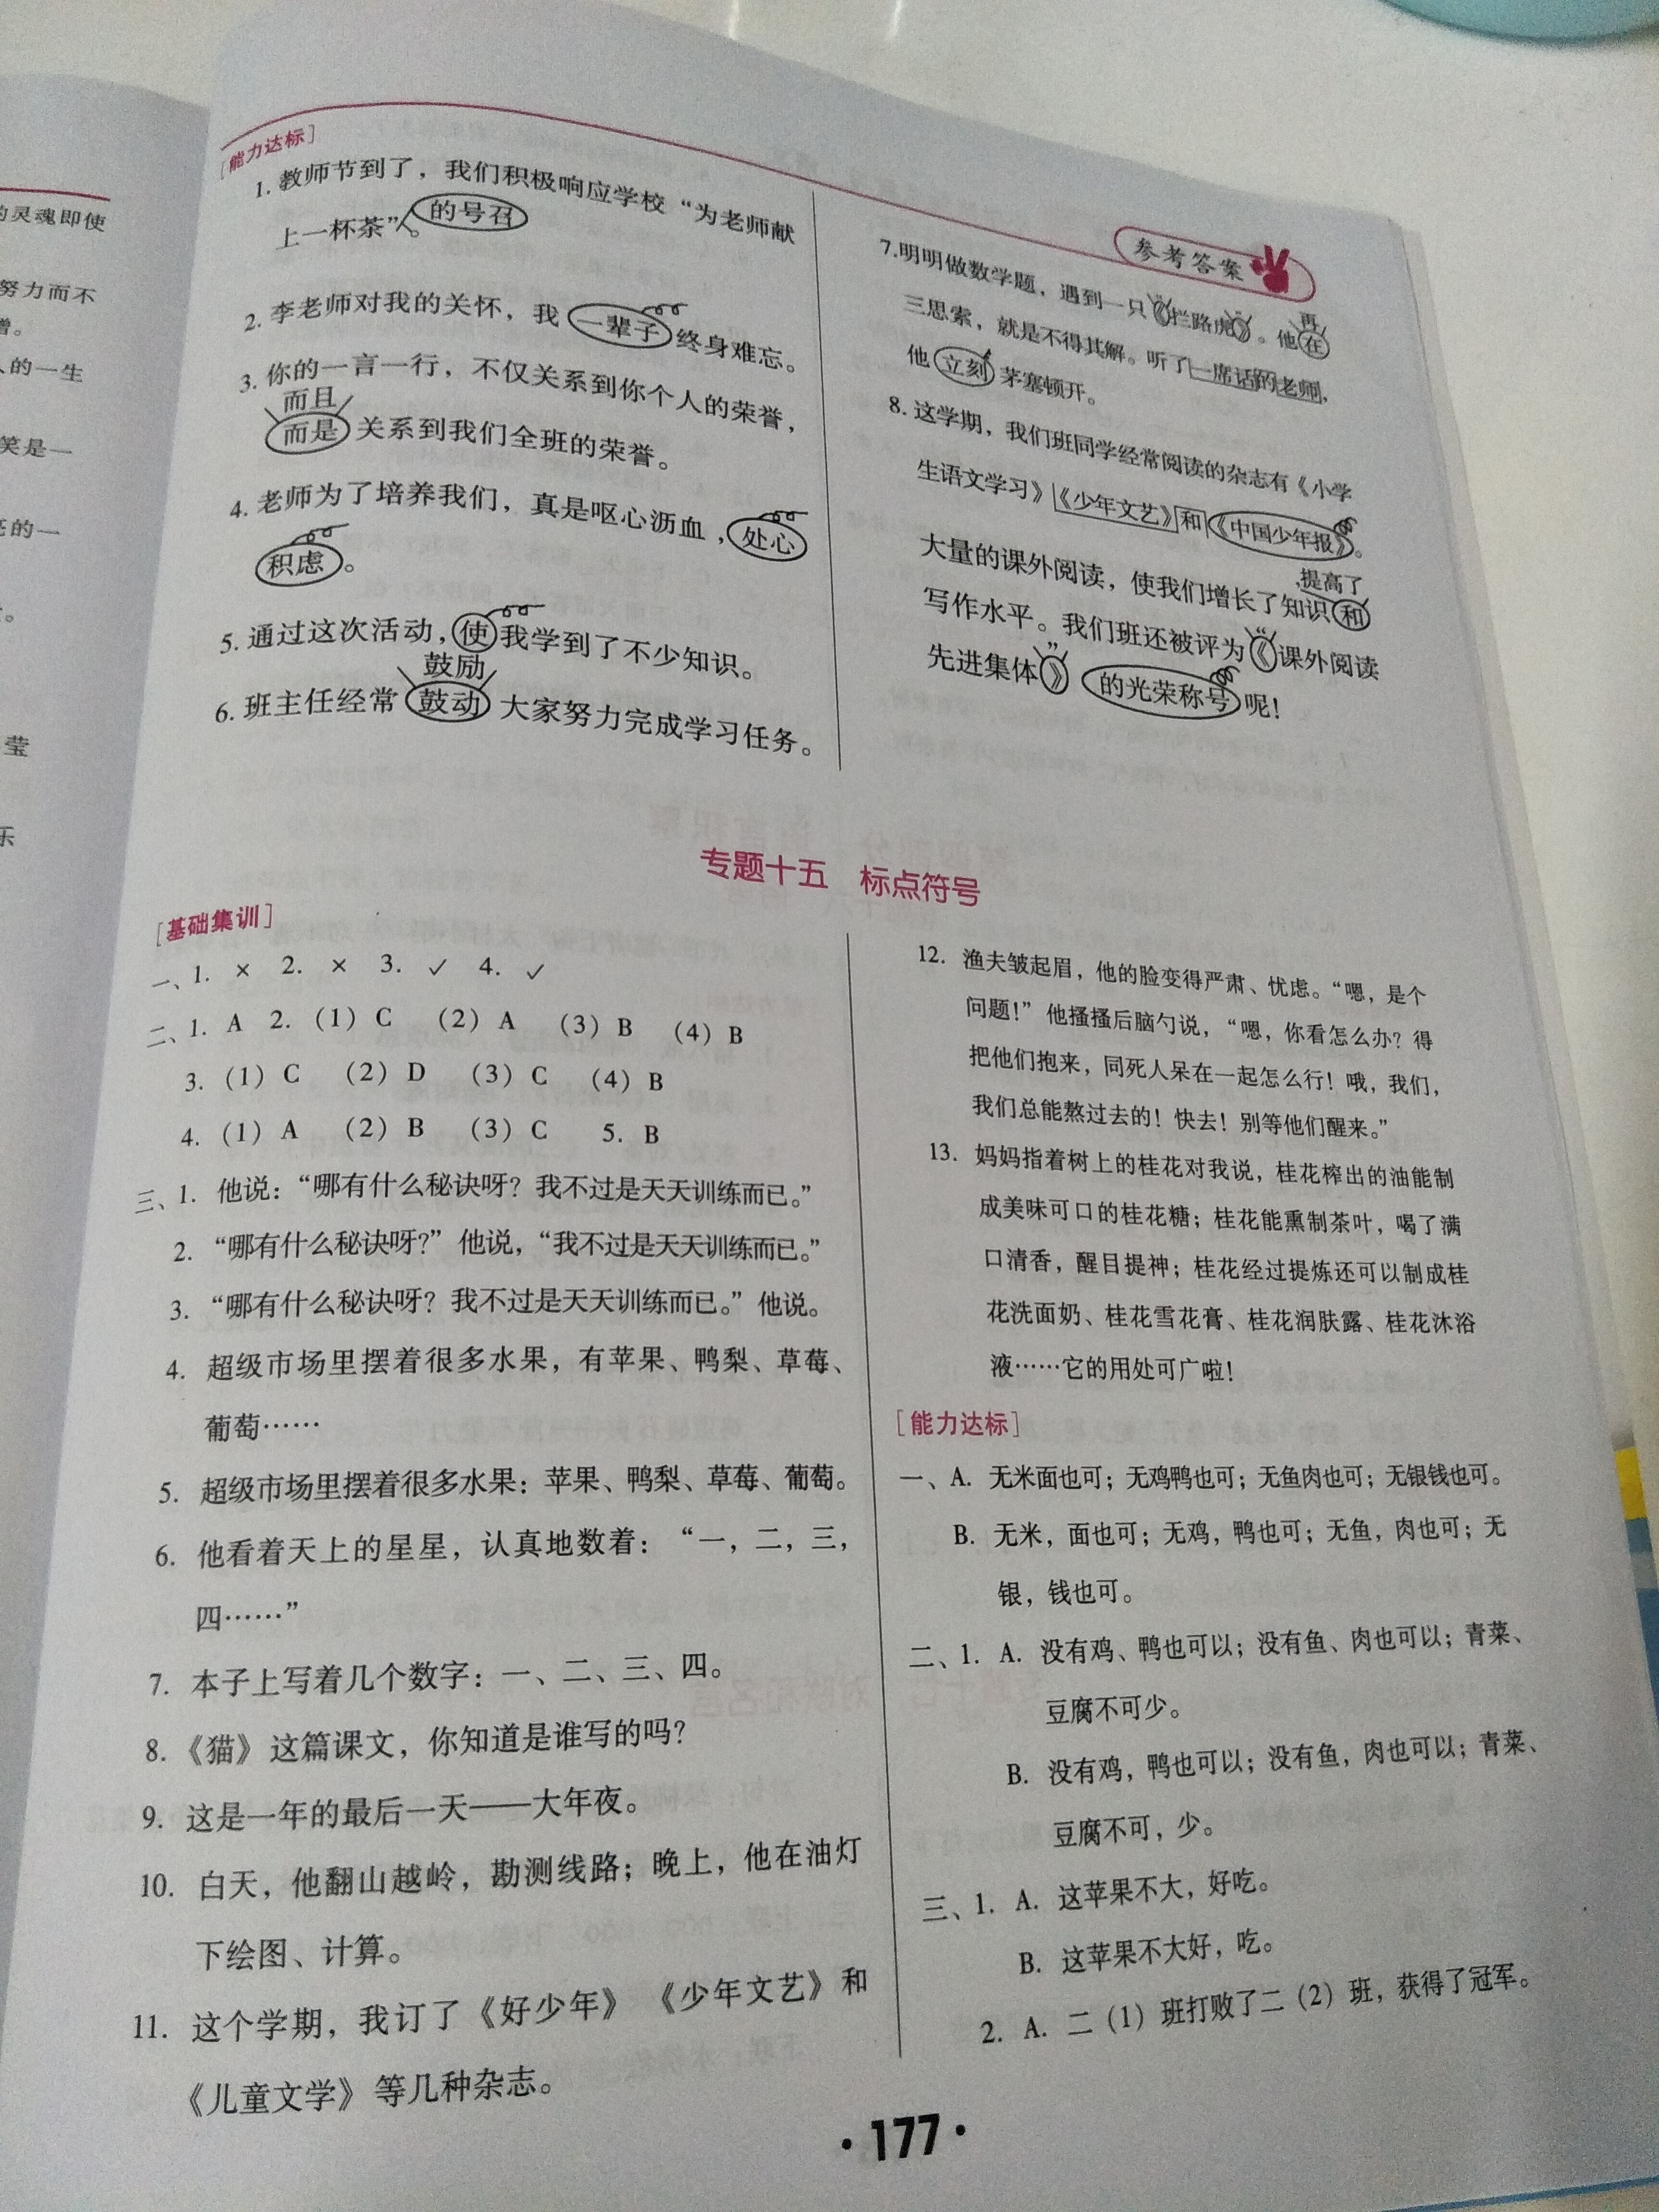 的灵魂即使
努力而不
人的一生
笑是一
亮的一
莹
乐
[能力达标]
1. 教师节到了，我们积极响应学校“为老师献
上一杯茶”。的号召
2. 李老师对我的关怀，我一辈子终身难忘。
3. 你的一言一行，不仅关系到你个人的荣誉，
而且
而是关系到我们全班的荣誉。
4. 老师为了培养我们，真是呕心沥血，处心
积虑。
5. 通过这次活动，使我学到了不少知识。
鼓励
6. 班主任经常鼓动大家努力完成学习任务。
参考答案
7.明明做数学题，遇到一只《“拦路虎》”。他在再
三思索，就是不得其解。听了一席话的老师，
他立刻茅塞顿开。
8. 这学期，我们班同学经常阅读的杂志有《小学
生语文学习》《少年文艺》和《中国少年报》。
大量的课外阅读，使我们增长了知识和，提高了
写作水平。我们班还被评为《“课外阅读
先进集体》”的光荣称号呢！
专题十五 标点符号
[基础集训]
一、1. × 2. × 3. ✓ 4. ✓
二、1. A 2. （1）C （2）A （3）B （4）B
3. （1）C （2）D （3）C （4）B
4. （1）A （2）B （3）C 5. B
三、1. 他说：“哪有什么秘诀呀？我不过是天天训练而已。”
2. “哪有什么秘诀呀？”他说，“我不过是天天训练而已。”
3. “哪有什么秘诀呀？我不过是天天训练而已。”他说。
4. 超级市场里摆着很多水果，有苹果、鸭梨、草莓、
葡萄……
5. 超级市场里摆着很多水果：苹果、鸭梨、草莓、葡萄。
6. 他看着天上的星星，认真地数着：“一，二，三，
四……”
7. 本子上写着几个数字：一、二、三、四。
8.《猫》这篇课文，你知道是谁写的吗？
9. 这是一年的最后一天——大年夜。
10. 白天，他翻山越岭，勘测线路；晚上，他在油灯
下绘图、计算。
11. 这个学期，我订了《好少年》《少年文艺》和
《儿童文学》等几种杂志。
12. 渔夫皱起眉，他的脸变得严肃、忧虑。“嗯，是个
问题！”他搔搔后脑勺说，“嗯，你看怎么办？得
把他们抱来，同死人呆在一起怎么行！哦，我们，
我们总能熬过去的！快去！别等他们醒来。”
13. 妈妈指着树上的桂花对我说，桂花榨出的油能制
成美味可口的桂花糖；桂花能熏制茶叶，喝了满
口清香，醒目提神；桂花经过提炼还可以制成桂
花洗面奶、桂花雪花膏、桂花润肤露、桂花沐浴
液……它的用处可广啦！
[能力达标]
一、A. 无米面也可；无鸡鸭也可；无鱼肉也可；无银钱也可。
B. 无米，面也可；无鸡，鸭也可；无鱼，肉也可；无
银，钱也可。
二、1. A. 没有鸡、鸭也可以；没有鱼、肉也可以；青菜、
豆腐不可少。
B. 没有鸡，鸭也可以；没有鱼，肉也可以；青菜、
豆腐不可，少。
三、1. A. 这苹果不大，好吃。
B. 这苹果不大好，吃。
2. A. 二（1）班打败了二（2）班，获得了冠军。
·177·